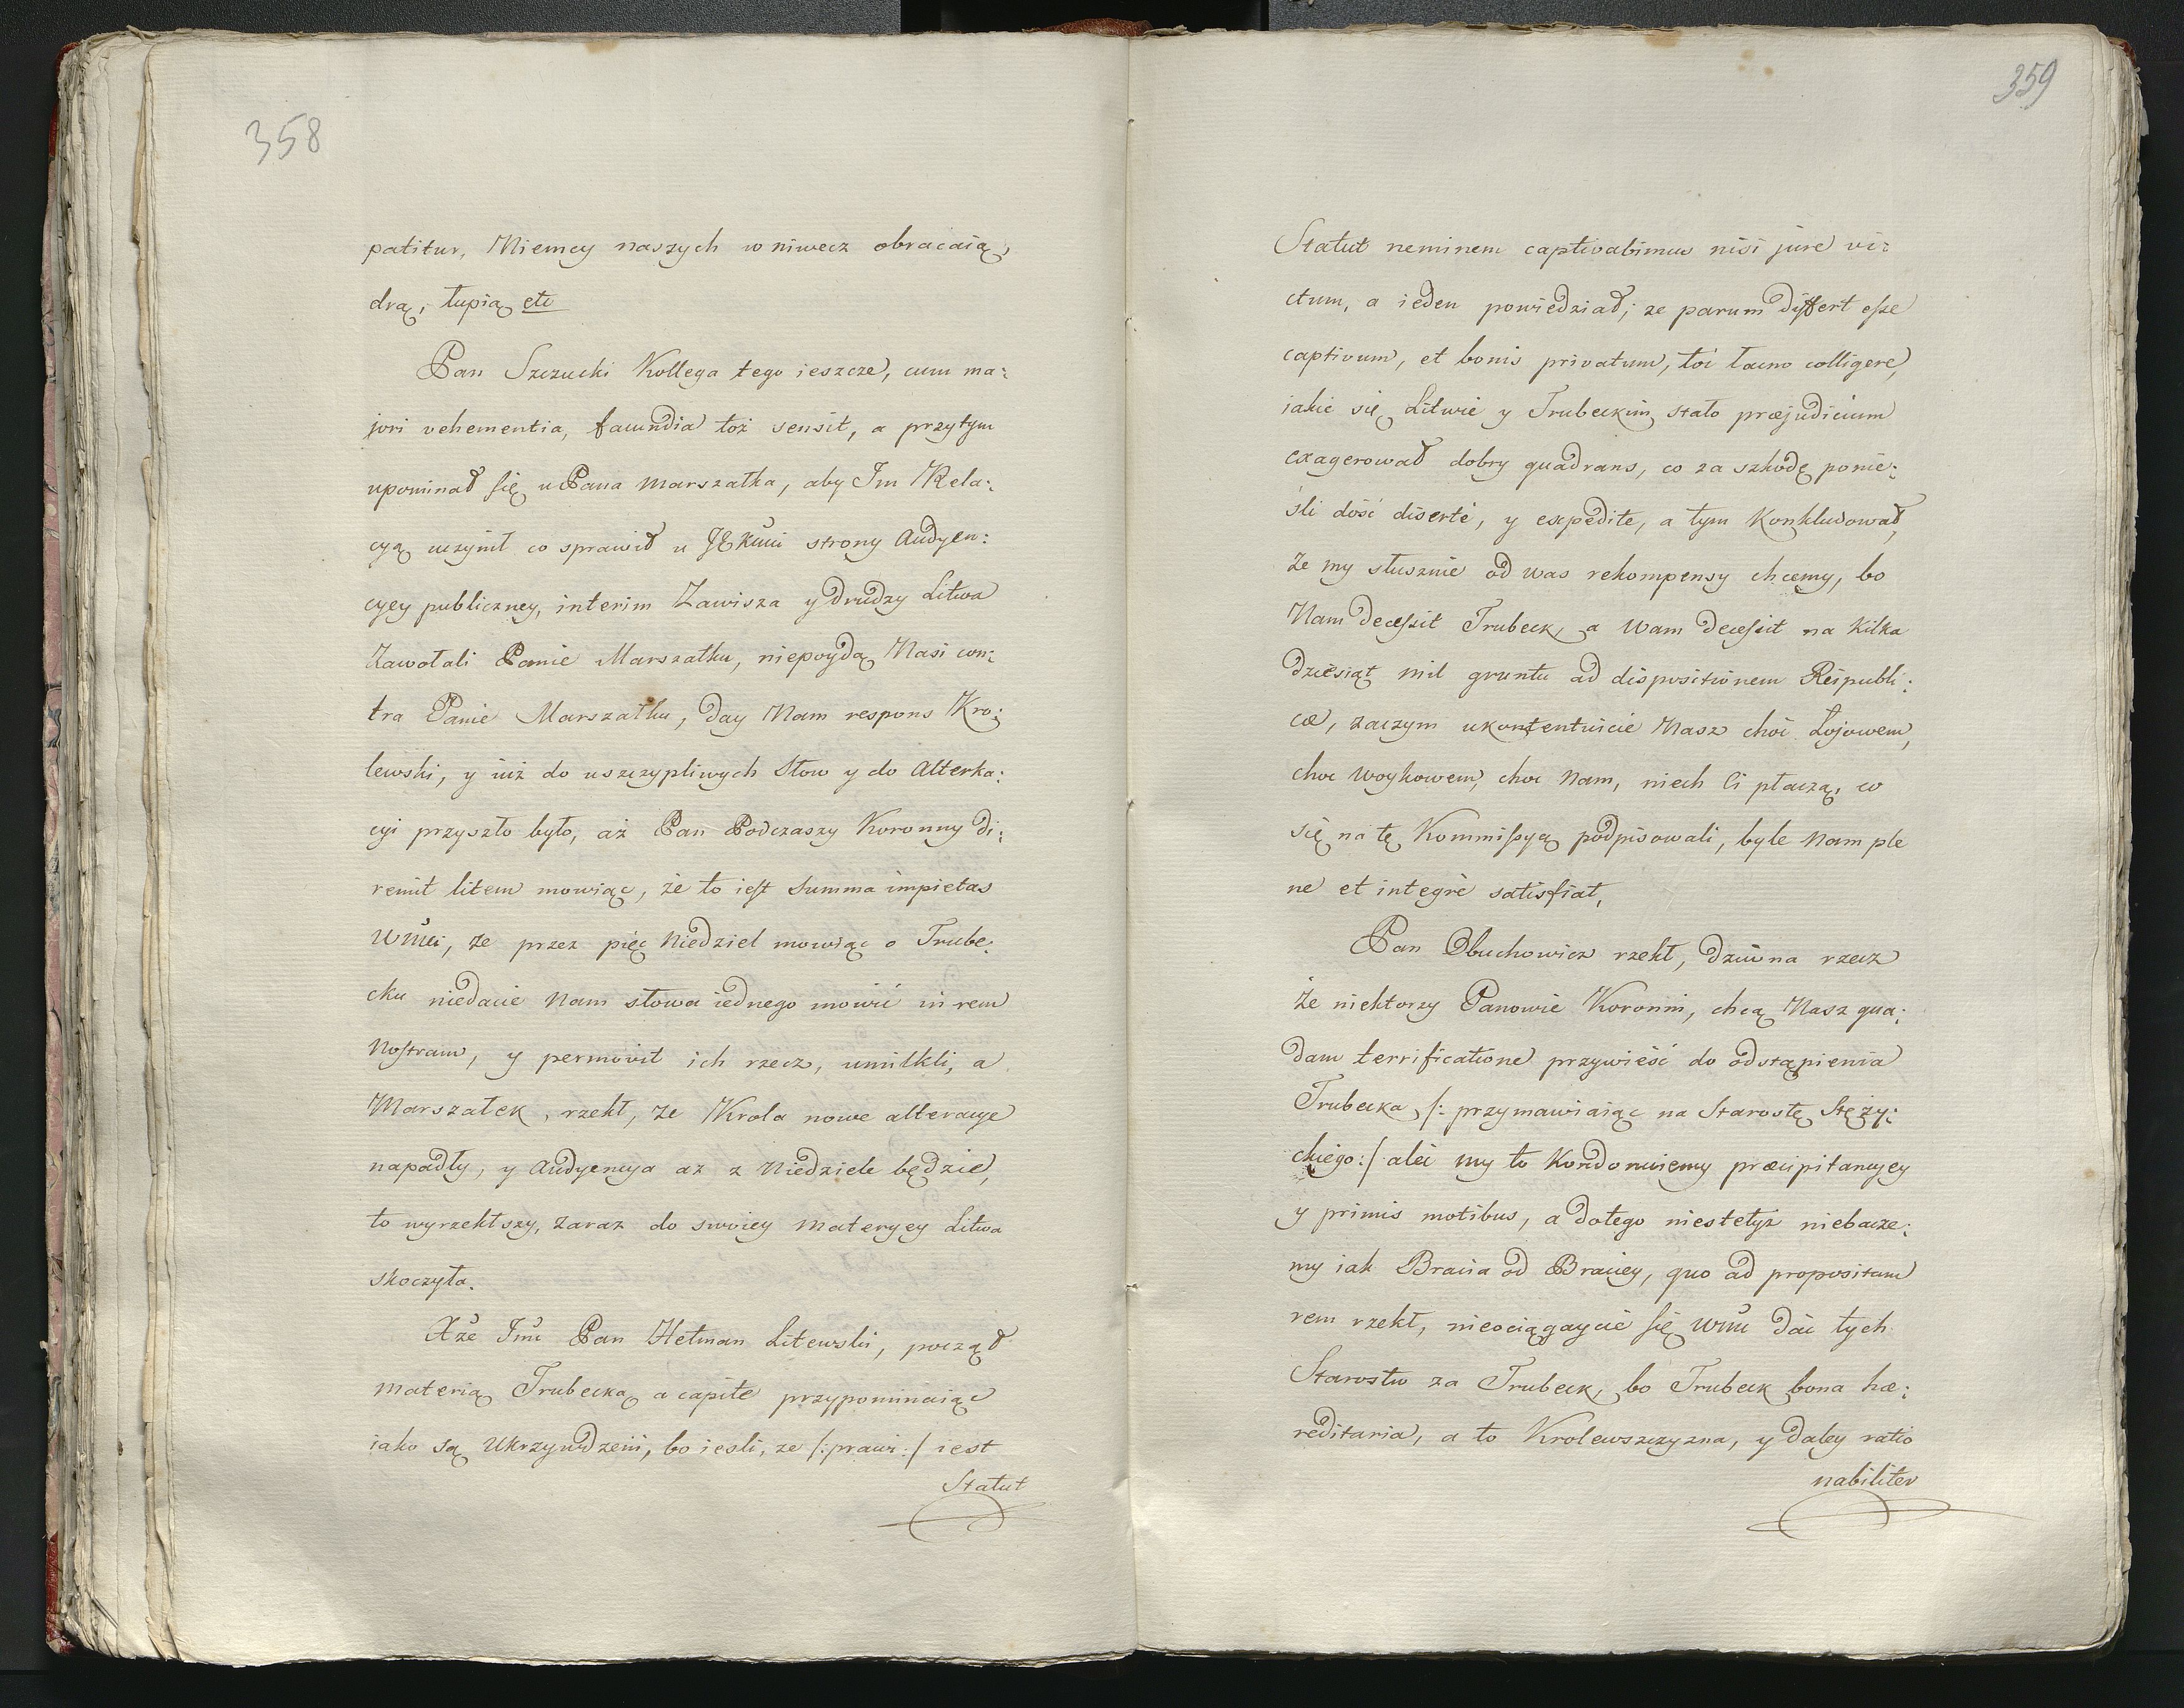 358
patitur, Niemcy naszych w niwecz obracaią,
drą, łupią etc
Pan Szczucki Kollega tego ieszcze, cum ma:
jori vehementia, facundia toż sensit, a przytym
upominał się u Pana Marszałka, aby Im Rela:
cyą uczynił co sprawił u JEKmci strony Audyen:
cyey publiczney, interim Zawisza y drudzy Litwa
Zawołali Panie Marszałku, niepoydą Nasi con:
tra Panie Marszałku, day Nam respons Kro:
lewski, y iuż do uszczypliwych Słow y do Alterka:
cyi przyszło było, aż Pan Podczaszy Koronny di:
remit litem mowiąc, że to iest Summa impietas
Wmci, że przez pięć Niedziel mowiąc o Trube:
cku niedacie Nam słowa iednego mowić in rem
Nostram, y permovit ich rzecz, umilkli, a
Marszałek, rzekł, że Krola nowe alteracye
napadły, y Audyencya aż z Niedziele będzie,
to wyrzekłszy, zaraz do swoiey materyey Litwa
skoczyła.
Xże Jmć Pan Hetman Litewski, począł
materią Trubecką a capite przypominaiąc
iako są Ukrzywdzeni, bo iesli, ze /:prawi:/ iest
Statut
359
Statut neminem captivabimus nisi jure vi:
ctum, a ieden powiedział; ze parum differt esse
captivum, et bonis privatum, toć łacno colligere,
iakie się Litwie y Trubeckim stało præjudicium
exagerował dobry quadrans, co za szkodę ponie:
śli dość diserté, y expedite, a tym Konkludował,
Ze my słusznie od was rekompensy chcemy, bo
Nam decessit Trubeck, a Wam decessit na Kilka
dziesiąt mil gruntu ad dispositionem Reipubli:
cæ, zaczym ukontentuicie Nasz choć Łojowem,
choc Woykowem, choc Nam, niech Ci płaczą, co
się na tę Kommissyą podpisowali, byle Nam ple
ne et integrè satisfiat,
Pan Obuchowicz rzekł, dziwna rzecz
Że niektorzy Panowie Koronni, chcą Nasz qua:
dam terrificatione przywieść do odstąpienia
Trubecka, /: przymawiaiąc na Starostę Stęży:
ckiego:/ aleć my to Kondonuiemy præcipitancyey
y primis motibus, a dotego niestetyż niebacze:
my iak Bracia od Braciey, quo ad propositam
rem rzekł, nieociągaycie się Wmć dać tych
Starostw za Trubeck, bo Trubeck bona hæ:
reditaria, a to Krolewszczyzna, y daley ratio
nabiliter